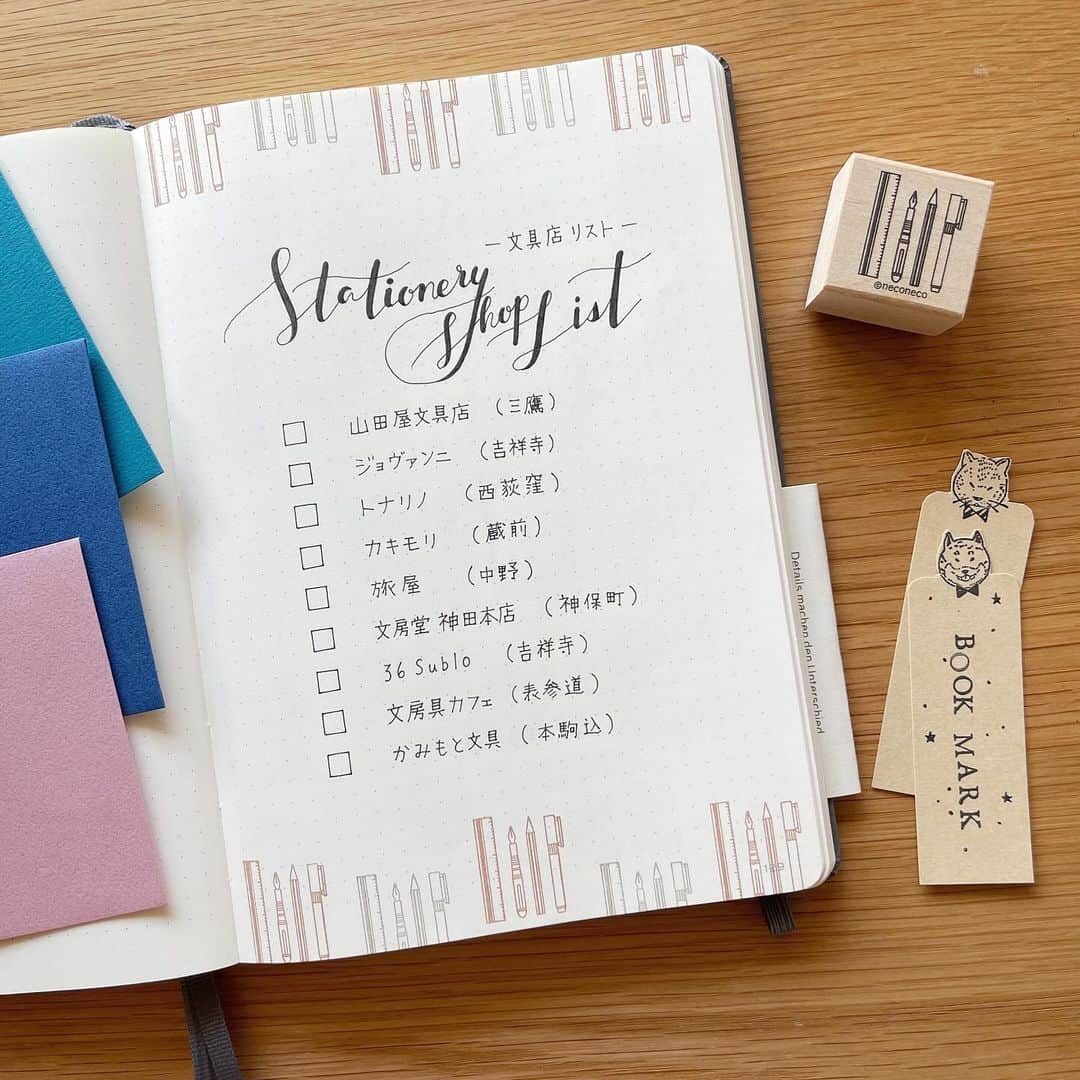 －文具店リスト－
Stationery
Shop List
山田屋文具店 （三鷹）
ジョヴァンニ （吉祥寺）
トナリノ （西荻窪）
カキモリ （蔵前）
旅屋 （中野）
文房堂 神田本店 （神保町）
36 Sublo （吉祥寺）
文房具カフェ （表参道）
かみもと文具 （本駒込）
169
©neconeco
Details machen den Unterschied
BOOK MARK